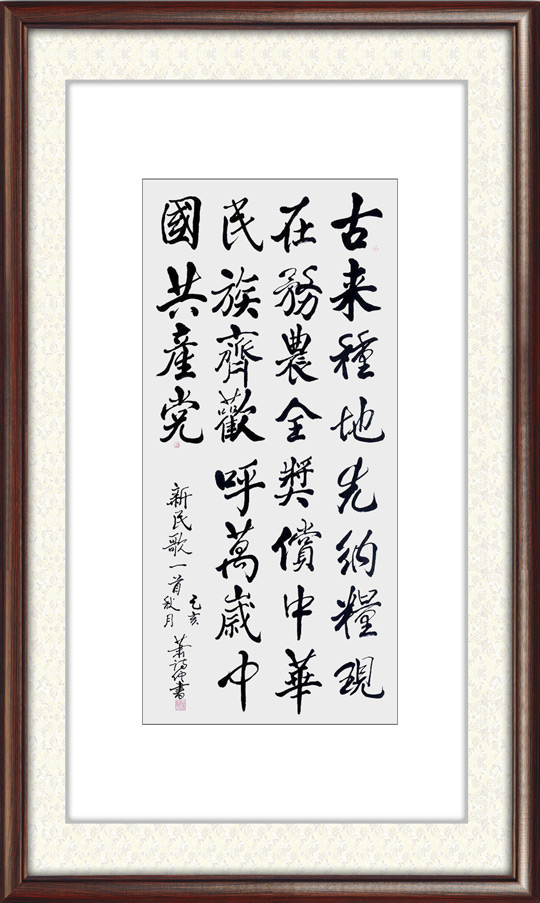 古来種地先納糧現
在務農全奬償中華
民族齊歡呼萬歲中
國共産党
新民歌一首
己亥
秋月
書